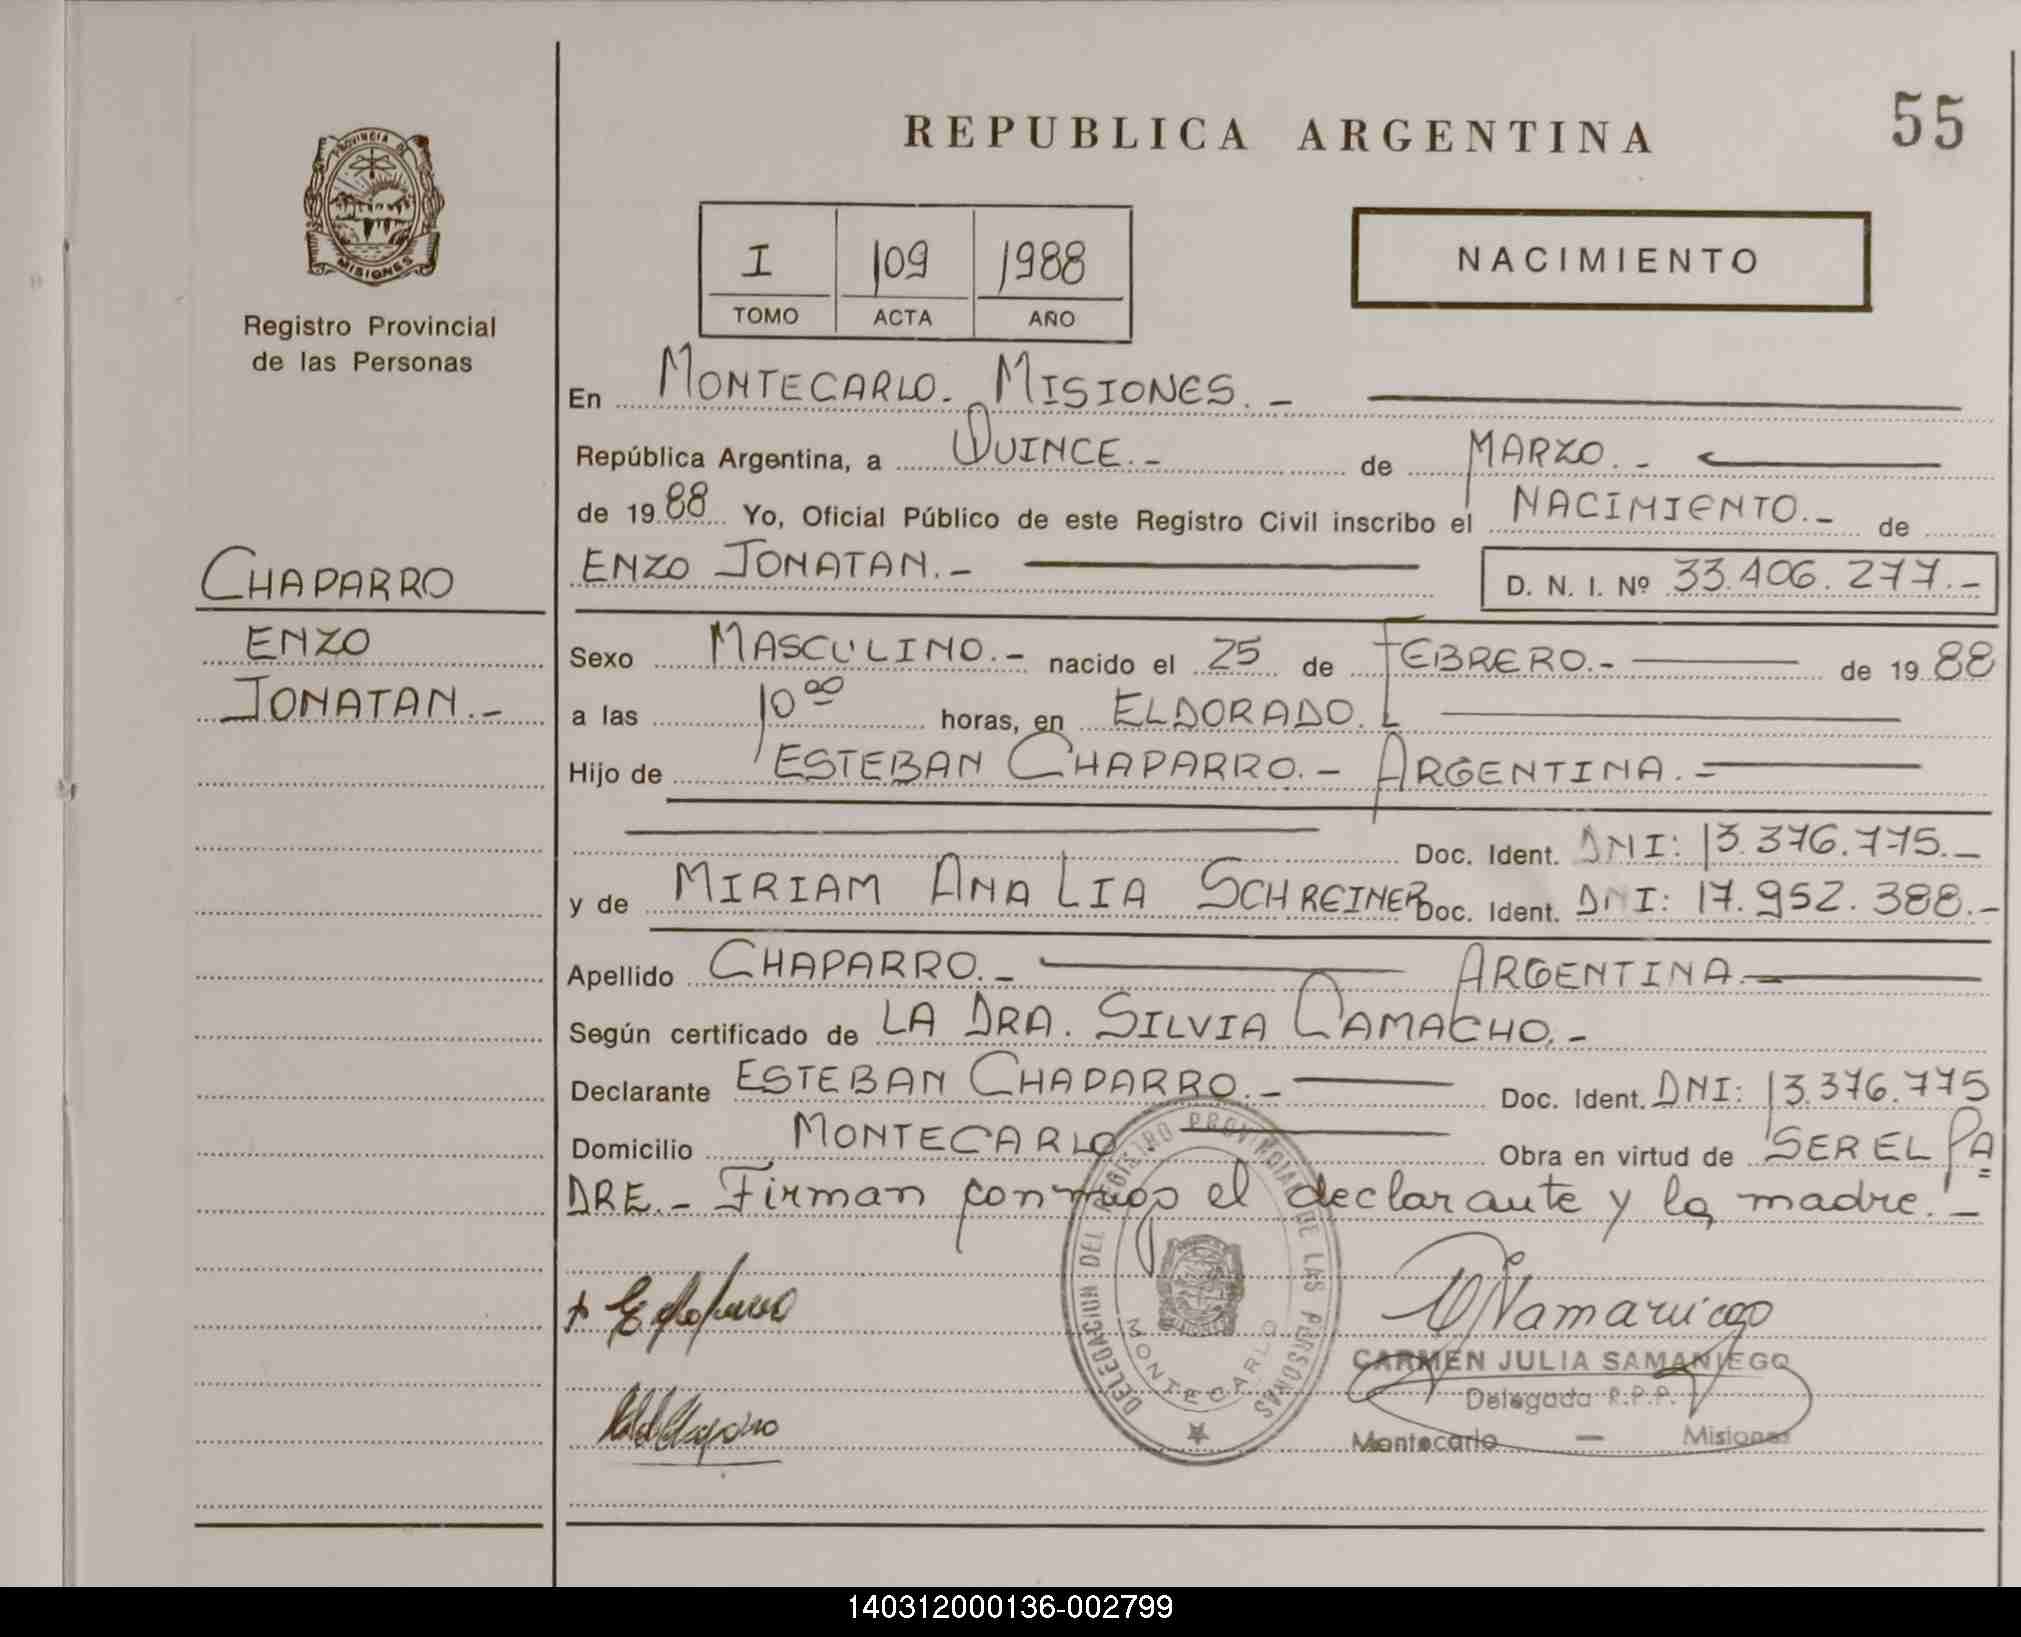 REPUBLICA ARGENTINA
55
PROVINCIA DE
MISIONES
Registro Provincial
de las Personas
I 109 1988
TOMO ACTA AÑO
NACIMIENTO
En MONTECARLO. MISIONES.-
República Argentina, a QUINCE.- de MARZO.-
de 1988 Yo, Oficial Público de este Registro Civil inscribo el NACIMIENTO.- de
ENZO JONATAN.- D. N. I. Nº 33.406.277.-
CHAPARRO
ENZO
JONATAN.-
Sexo MASCULINO.- nacido el 25 de FEBRERO.- de 1988
a las 10 00 horas, en ELDORADO.
Hijo de ESTEBAN CHAPARRO.- ARGENTINA.-
Doc. Ident. DNI: 13.376.775.-
y de MIRIAM ANA LIA SCHREINER Doc. Ident. DNI: 17.952.388.-
Apellido CHAPARRO.- ARGENTINA.-
Según certificado de LA DRA. SILVIA CAMACHO.-
Declarante ESTEBAN CHAPARRO.- Doc. Ident. DNI: 13.376.775
Domicilio MONTECARLO Obra en virtud de SER EL PA=
DRE.- Firman conmigo el declarante y la madre.-
DELEGACION DEL REGISTRO PROVINCIAL DE LAS PERSONAS
MONTECARLO
CARMEN JULIA SAMANIEGO
Delegada R.P.P.
Montecarlo - Misiones
140312000136-002799